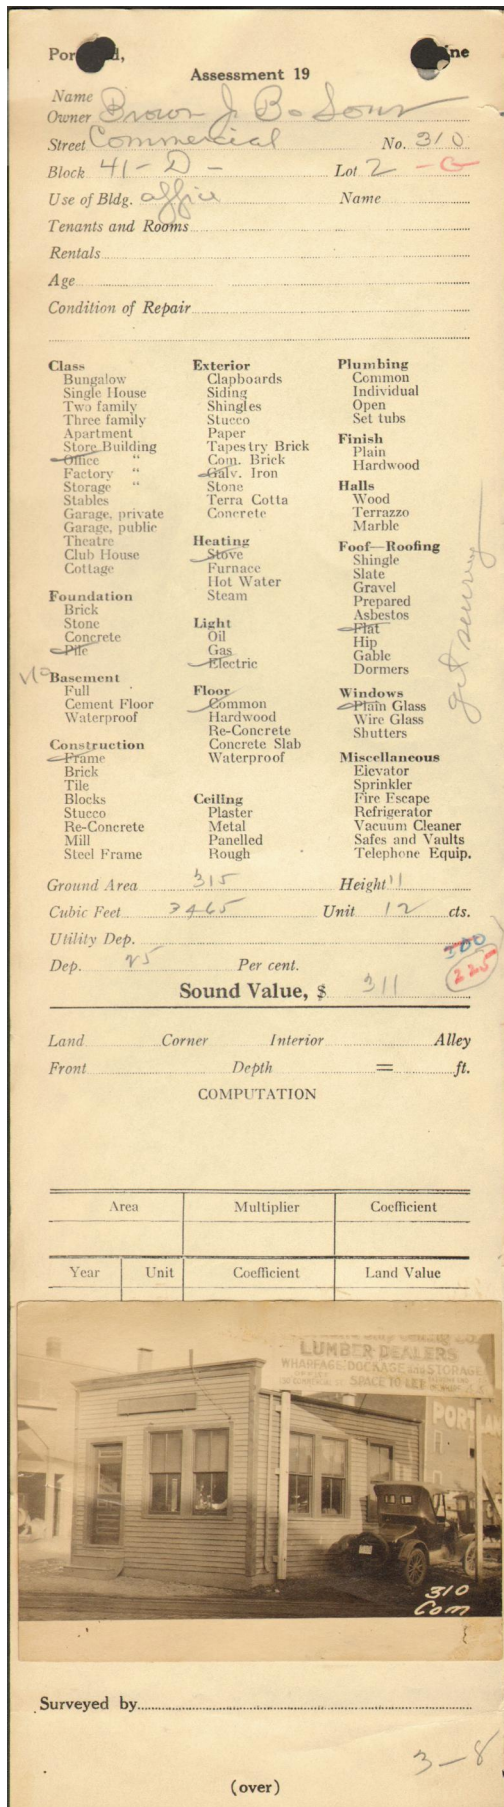 Assessment 19
Name
Owner Brown J. B. & Sons
Street Commercial No. 310
Block 41-D- Lot 2 -G
Use of Bldg. office Name
Tenants and Rooms
Rentals
Age
Condition of Repair
Class
Bungalow
Single House
Two family
Three family
Apartment
Store Building
Office "
Factory "
Storage "
Stables
Garage, private
Garage, public
Theatre
Club House
Cottage
Foundation
Brick
Stone
Concrete
Pile
No Basement
Full
Cement Floor
Waterproof
Construction
Frame
Brick
Tile
Blocks
Stucco
Re-Concrete
Mill
Steel Frame
Exterior
Clapboards
Siding
Shingles
Stucco
Paper
Tapestry Brick
Com. Brick
Galv. Iron
Stone
Terra Cotta
Concrete
Heating
Stove
Furnace
Hot Water
Steam
Light
Oil
Gas
Electric
Floor
Common
Hardwood
Re-Concrete
Concrete Slab
Waterproof
Ceiling
Plaster
Metal
Panelled
Rough
Plumbing
Common
Individual
Open
Set tubs
Finish
Plain
Hardwood
Halls
Wood
Terrazzo
Marble
Foof—Roofing
Shingle
Slate
Gravel
Prepared
Asbestos
Flat
Hip
Gable
Dormers
Windows
Plain Glass
Wire Glass
Shutters
Miscellaneous
Elevator
Sprinkler
Fire Escape
Refrigerator
Vacuum Cleaner
Safes and Vaults
Telephone Equip.
Ground Area 315 Height 11
Cubic Feet 3465 Unit 12 cts.
Utility Dep. 300
Dep. 25 Per cent. 225
Sound Value, $ 311
Land Corner Interior Alley
Front Depth = ft.
COMPUTATION
Area Multiplier Coefficient
Year Unit Coefficient Land Value
LUMBER DEALERS
WHARFAGE DOCKAGE AND STORAGE
SPACE TO LET
PORTLA
310
Com
Surveyed by
3-8
(over)